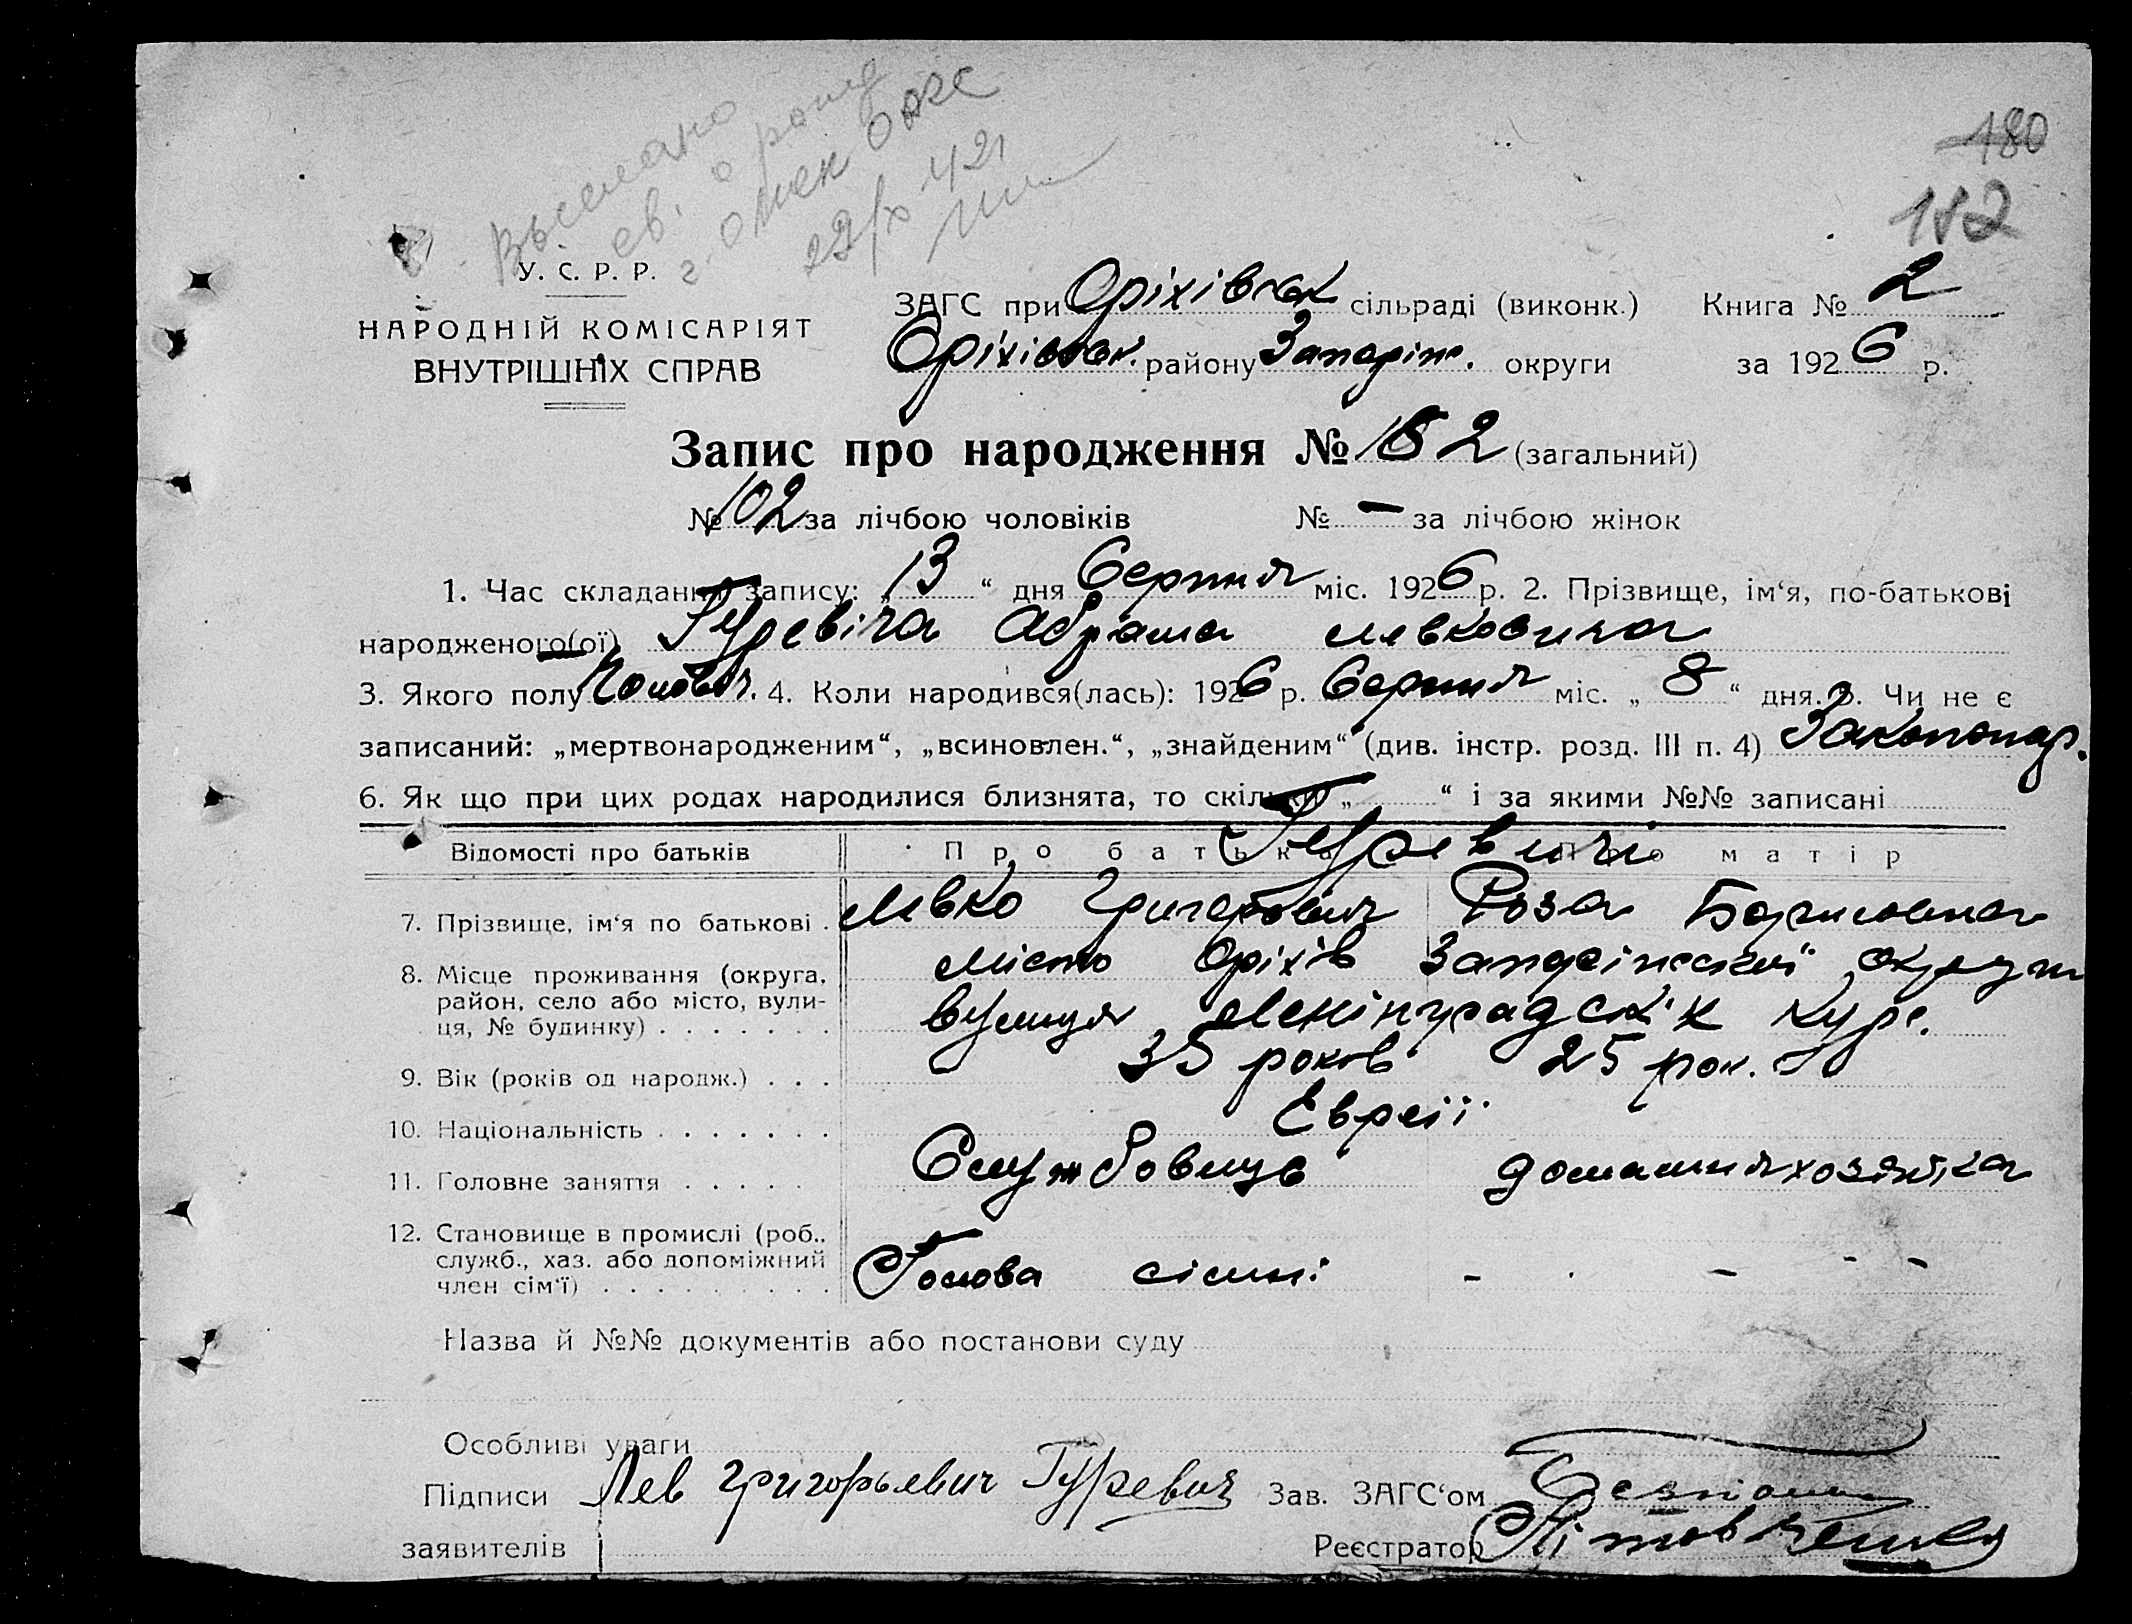 180
182
Выслано
св. о рожд
г. Омск ОАГС
22/X 42г
У. С. Р. Р.
НАРОДНІЙ КОМІСАРІЯТ
ВНУТРІШНІХ СПРАВ
ЗАГС при Оріхівськ сільраді (виконк.) Книга № 2
Оріхівськ. району Запоріж. округи за 1926 р.
Запис про народження № 182 (загальний)
№ 102 за лічбою чоловіків № — за лічбою жінок
1. Час складання запису: „ 13 “ дня Серпня міс. 1926 р. 2. Прізвище, ім‘я, по-батькові
народженого(ої) Гуревіча Абрама Левковича
3. Якого полу Чоловіч. 4. Коли народився(лась): 1926 р. Серпня міс. „ 8 “ дня. 5. Чи не є
записаний: „мертвонародженим“, „всиновлен.“, „знайденим“ (див. інстр. розд. III п. 4) Законнар.
6. Як що при цих родах народилися близнята, то скільки „ “ і за якими №№ записані
Відомості про батьків Про батька Про матір
Гуревичі
7. Прізвище, ім‘я по батькові . Левко Григорович Роза Борисовна
8. Місце проживання (округа, місто Оріхів Запорізської округи
район, село або місто, вули-
ця, № будинку) . . . . . . . вулиця Ленінградськ'к кур.
9. Вік (років од народж.) . . . 35 років 25 рок.
10. Національність . . . . . . . Євреії
11. Головне заняття . . . . . Службовець домашня хозяйка
12. Становище в промислі (роб., Голова сімьї - . - - -
служб., хаз. або допоміжний
член сім‘ї) . . . . . . . . .
Назва й №№ документів або постанови суду
Особливі уваги
Підписи Лев Григорьевич Гуревич Зав. ЗАГС‘ом
заявителів Реєстратор